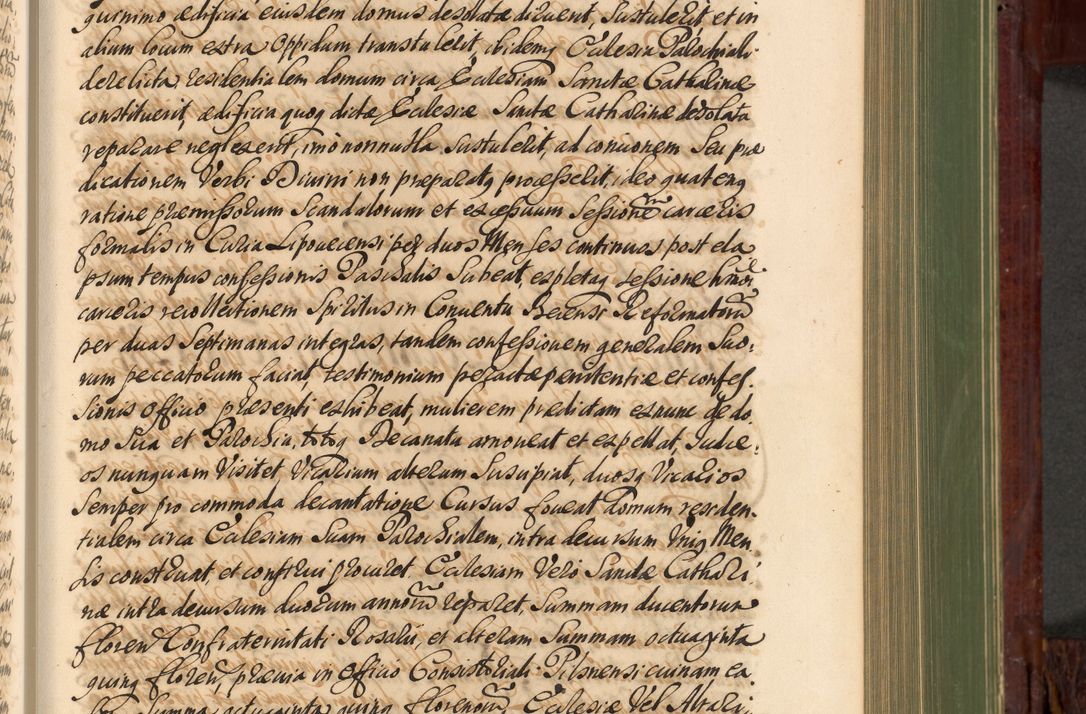 quinimo ædificia eiusdem domus desolatæ diruerit, Sustulerit et in
alium locum extra Oppidum transtulerit, ibidemq Ecclesia Parochiali
derelicta residentialem domum circa Ecclesiam Sanctæ Catharinæ
constituerit, ædificia quoq dictæ Ecclesiæ Sanctæ Catharinæ desolata
reparare neglexerit, imo nonnulla Sustulerit, ad concionem Seu præ
dicationem Verbi Divini non præparatq processerit, ideo quatenq
ratione præmissorum Scandalorum et excessuum Sessionem carceris
formalis in Curia Lipovecensi per duos Menses continuos post ela
psum tempus confessionis Paschalis Subeat, expletaq sessione hmoi
carceris recollectionem Spiritus in Conventu Reformatorum
per duas Septimanas integras, tandem confessionem generalem Suo,
rum peccatorum faciat, testimonium peractæ pænitentiæ et confes
sionis officio præsenti exhibeat, mulierem prædictam exnunc de do
mo Sua et Parochia, totoq Decanatu amoveat et expellat, Judæ,
os nunquam Visitet, Vicarium alterum Suscipiat, duosq Vicarios
Semper pro commoda decantatione Cursus foveat Domum residen
tialem circa Ecclesiam Suam Parochialem, intra decursum Uniq Men
sis construat, et construi procuret Ecclesiam Vero Sanctæ Cathari
næ intra decursum duorum annorum reparet, Summam ducentorum
floren Confraternitati Rosarii, et alteram Summam octuaginta
quinq floren, præmia in officio Consistoriali Pilsnensi cuinam ea
Summa octuaginta quinq florenorum, Ecclesiæ Vel Altari,